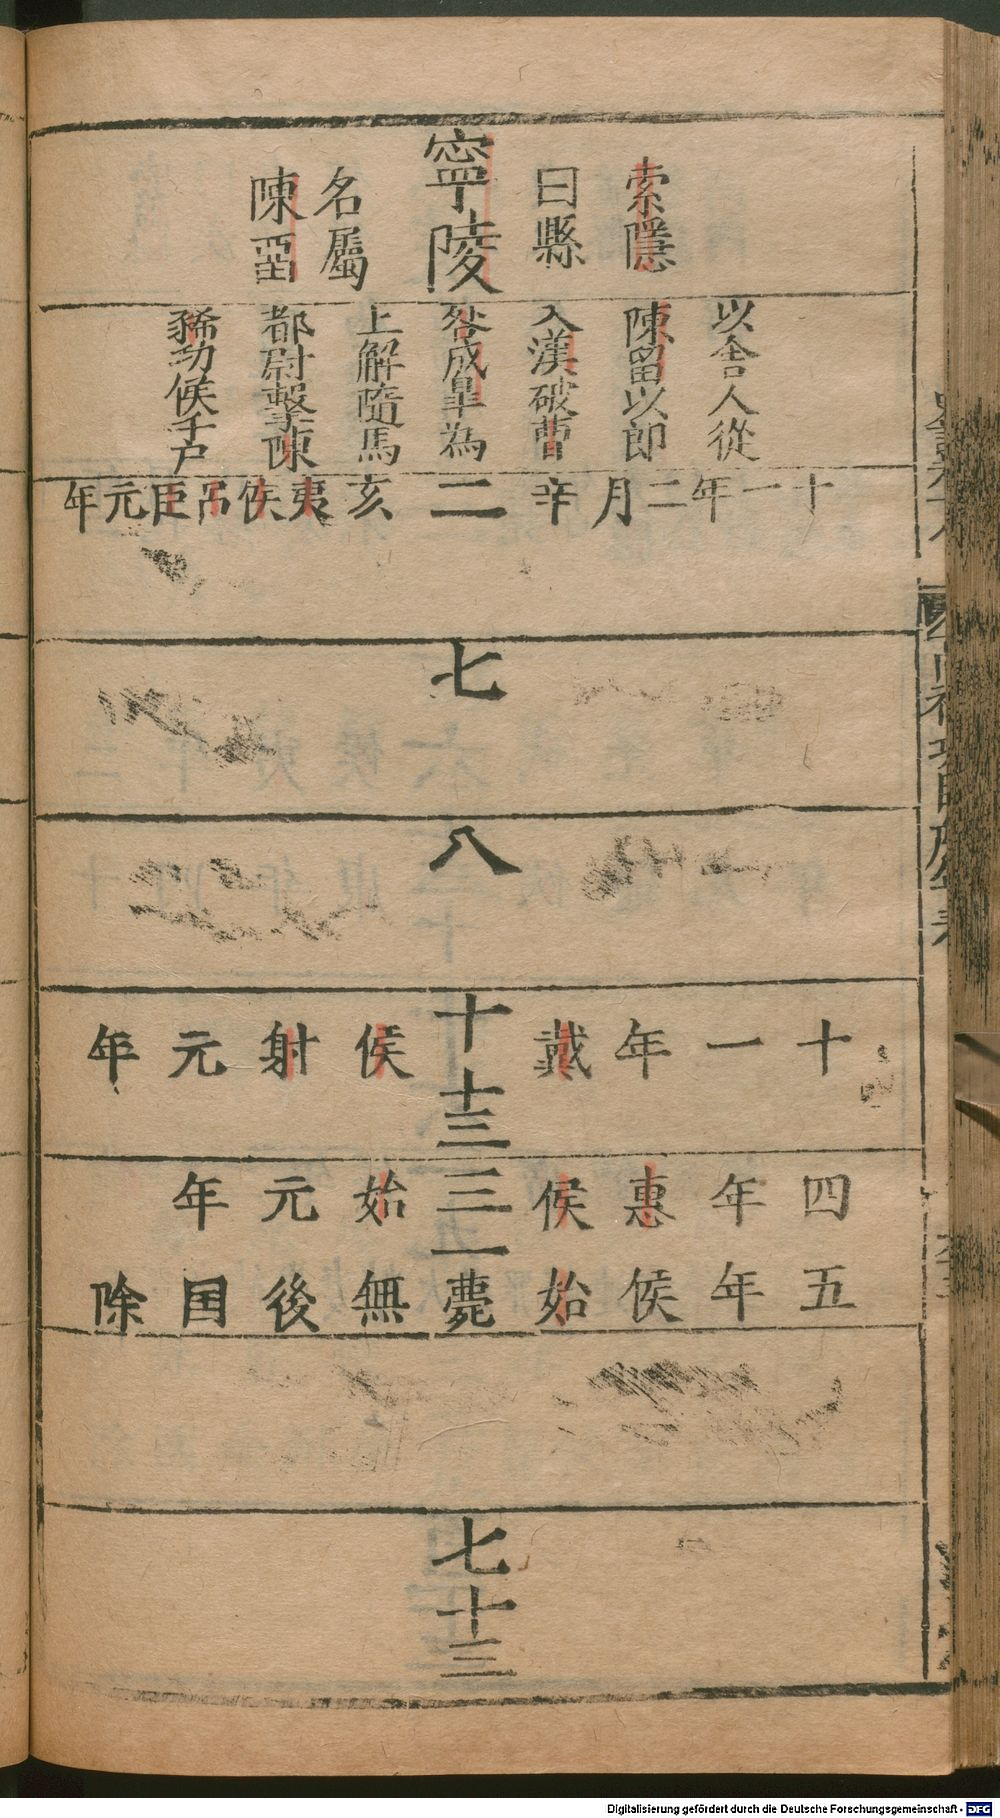 索隱
曰縣
寧陵
名屬
陳畱
以舍人從
陳留以郎
入漢破曹
咎成皐為
上解隨馬
都尉擊陳
豨功侯千戶
十一年二月辛
二
亥夷侯呂臣元年
七
八
十一年戴
十
侯射元年
十三
四年惠侯
三
始元年
五年侯始
一
薨無後国除
七十三
Digitalisierung gefördert durch die Deutsche Forschungsgemeinschaft - DFG